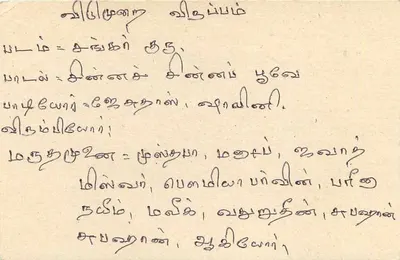 விடுமுறை விருப்பம்
படம் = சங்கர் குரு.
பாடல் = சின்னச் சின்னப் பூவே
பாடியோர் = ஜேசுதாஸ், ஷாலினி.
விரும்பியோர்;
மருதமுனை = முஸ்தபா, மனூப், ஜவாத்
மிஸ்வர், பௌமியா பர்வின், பரீனா
நயீம், மலீக், வதுறுதீன், சுபஹான்
சுபஹான், ஆகியோர்,